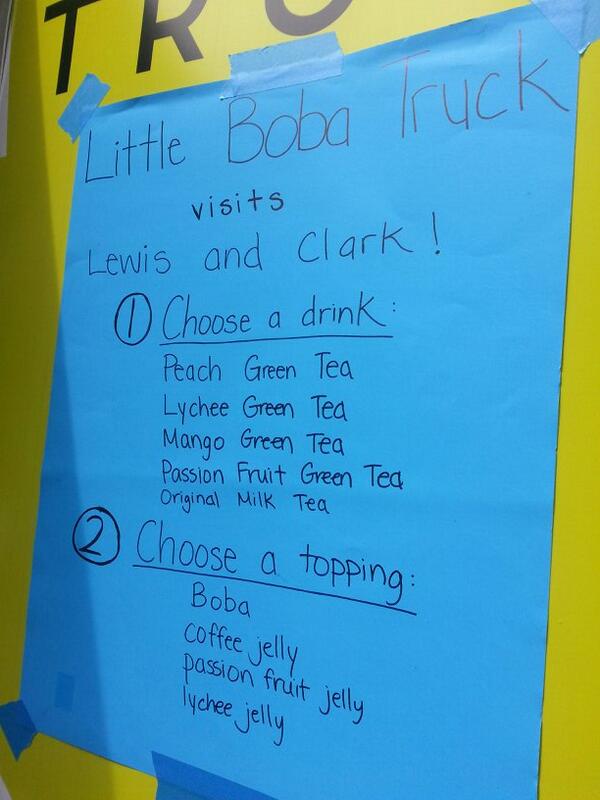 TRU
Little Boba Truck
visits
Lewis and Clark!
1 Choose a drink:
Peach Green Tea
Lychee Green Tea
Mango Green Tea
Passion Fruit Green Tea
Original Milk Tea
2 Choose a topping:
Boba
coffee jelly
passion fruit jelly
lychee jelly